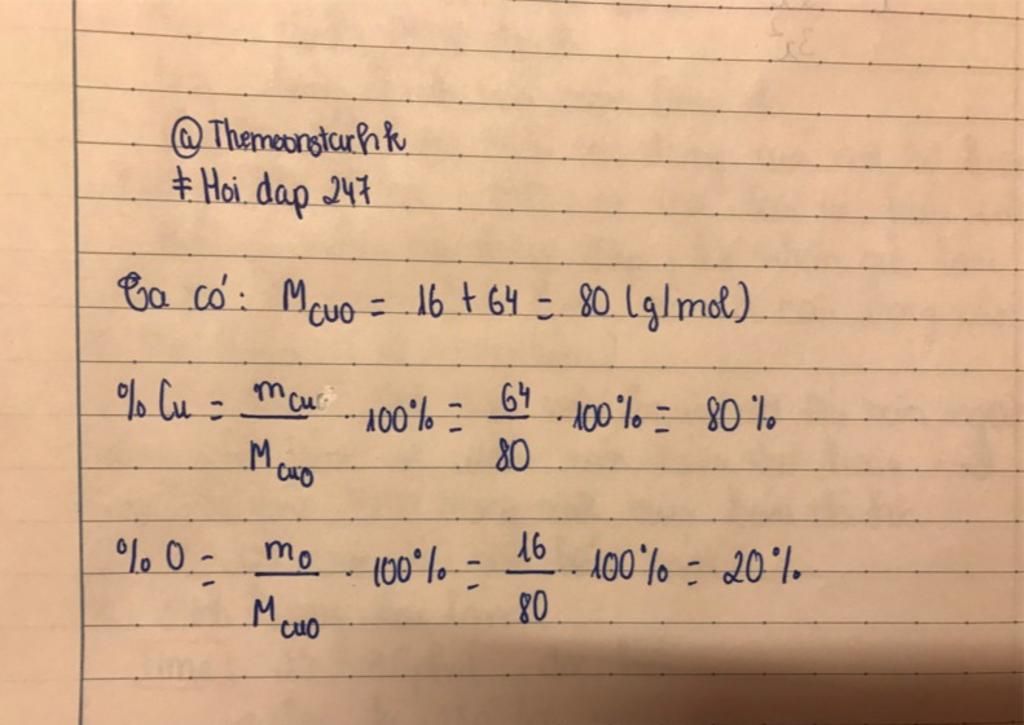 @Themeonstarhk
# Hoi dap 247
Ta có: M_CuO = 16 + 64 = 80 (g/mol)
% Cu = m_Cu / M_CuO . 100% = 64/80 . 100% = 80%
% O = m_O / M_CuO . 100% = 16/80 . 100% = 20%